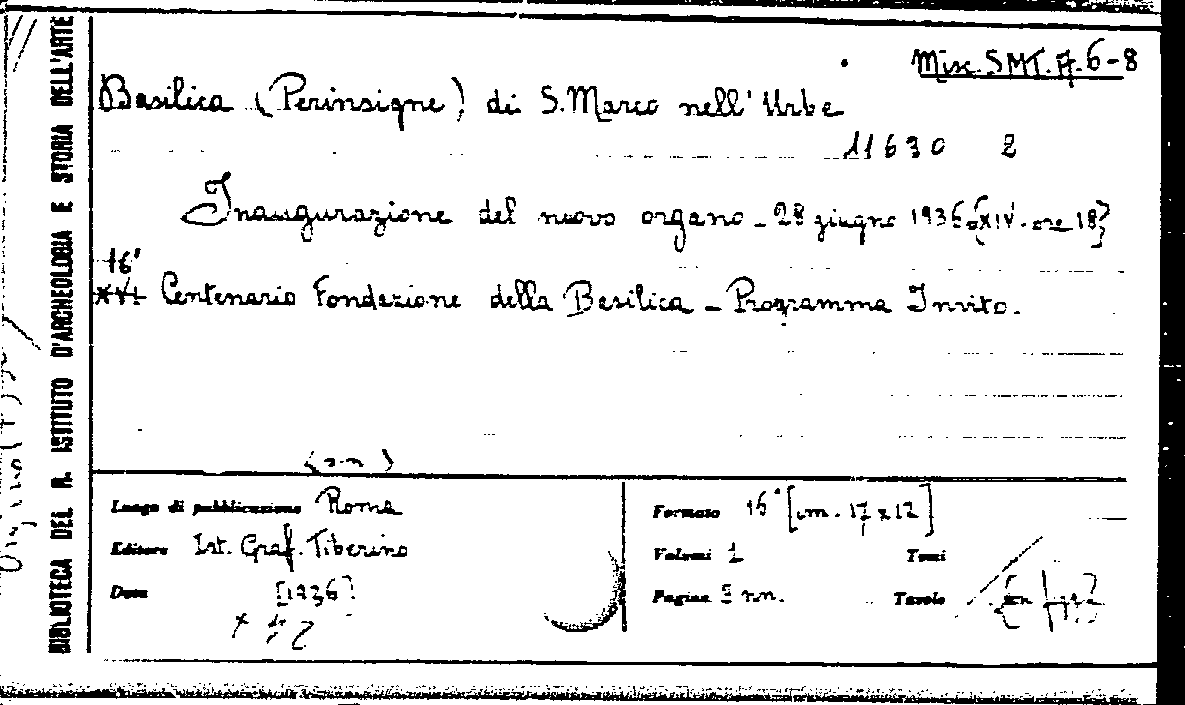 Misc. SMT. A. 6-8
Basilica (Perinsigne) di S. Marco nell'Urbe
11630 2
Inaugurazione del nuovo organo - 28 giugno 1936 (XIV. ore 18)
16°
XVI Centenario Fondazione della Basilica - Programma Invito.
BIBLIOTECA DEL R. ISTITUTO D'ARCHEOLOGIA E STORIA DELL'ARTE
(s.n)
Luogo di pubblicazione Roma
Editore Ist. Graf. Tiberino
Data [1936]
Formato 16° [cm. 17x12]
Volumi 1 Tomi
Pagine 5 nn. Tavole